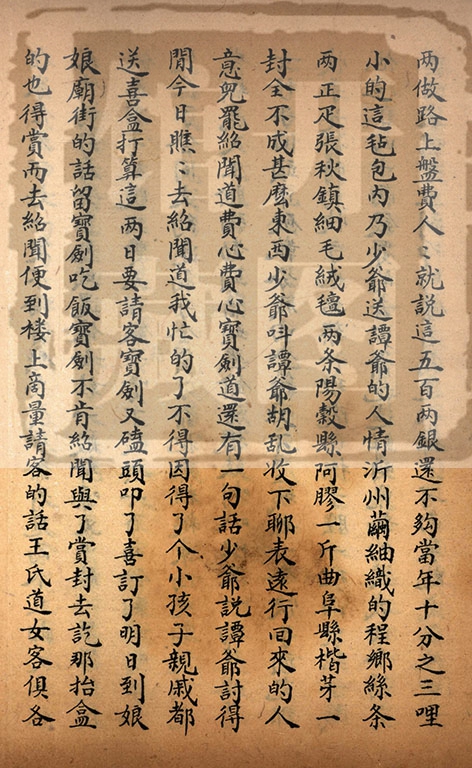 两做路上盤費人〻就説這五百两銀還不夠當年十分之三哩
小的這毡包内乃少爺送譚爺的人情沂州繭紬織的程鄉絲条
两正疋張秋鎮細毛絨氊两条陽穀縣阿膠一斤曲阜縣楷芽一
封全不成甚麽東西少爺呌譚爺胡乱收下聊表遠行回來的人
意兜罷紹聞道費心費心寳劍道還有一句話少爺説譚爺討得
閒今日瞧〻去紹聞道我忙的了不得因得了个小孩子親戚都
送喜盒打算這两日要請客寳劍又磕頭叩了喜訂了明日到娘
娘廟街的話留寳劍吃飯寳劍不肯紹聞與了賞封去訖那抬盒
的也得賞而去紹聞便到楼上商量請客的話王氏道女客俱各